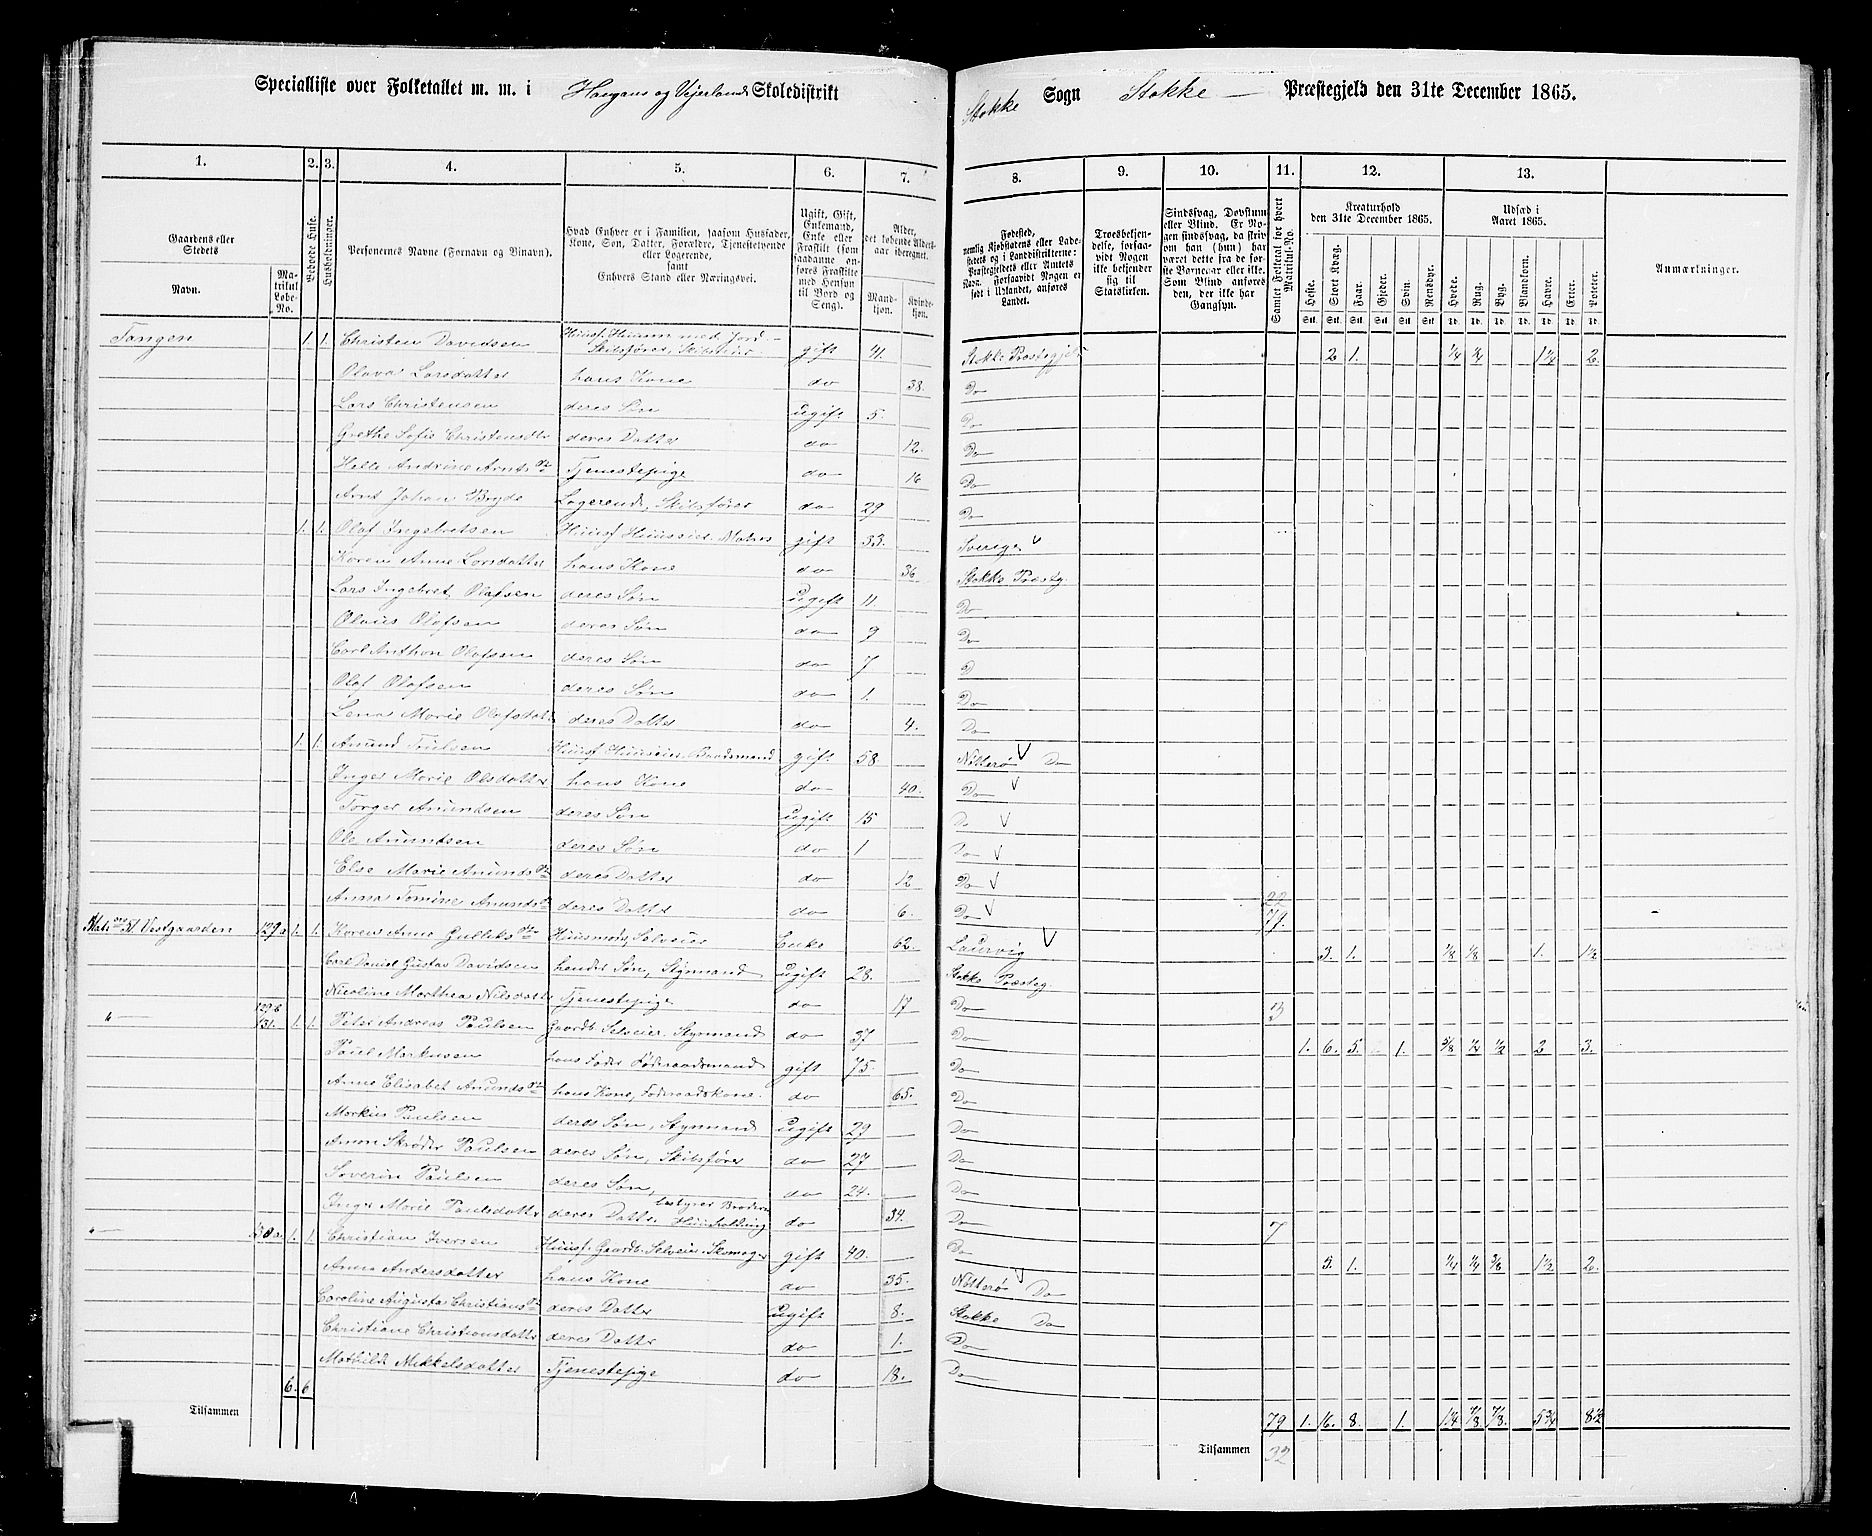 Specialliste over Folketallet m. m. i Haugans og Vejerlands Skoledistrikt
Stokke Sogn Stokke Præstegjeld den 31te December 1865.
1. 2. 3. 4. 5. 6. 7. 8. 9. 10. 11. 12. 13.
Gaardens eller Stedets
Navn.
Matrikul Løbe-No.
Beboede Huse.
Husholdninger.
Personernes Navne (Fornavn og Binavn).
Hvad Enhver er i Familien, saasom Husfader, Kone, Søn, Datter, Forældre, Tjenestetyende eller Logerende, samt Enhvers Stand eller Næringsvei.
Ugift, Gift, Enkemand, Enke eller Fraskilt (som saadanne anføres Fraskilte med Hensyn til Bord og Seng).
Alder, det løbende Aldersaar iberegnet.
Mandkjøn.
Kvindekjøn.
Fødested, nemlig Kjøbstadens eller Ladestedets og i Landdistrikterne: Præstegjeldets eller Amtets Navn. Forsaavidt Nogen er født i Udlandet, anføres Landet.
Troesbekjendelse, forsaavidt Nogen ikke bekjender sig til Statskirken.
Sindssvag, Døvstum eller Blind. Er Nogen sindssvag, da skriv om han (hun) har været dette fra de første Barneaar eller ikke. Som Blind anføres den, der ikke har Gangsyn.
Samlet Folketal for hvert Matrikul-No.
Kreaturhold den 31te December 1865.
Heste. Stort Kvæg. Faar. Gjeder. Svin. Rensdyr.
Udsæd i Aaret 1865.
Hvede. Rug. Byg. Blandkorn. Havre. Erter. Poteter.
Anmærkninger.
Tangen 1. 1. Christen Davidsen Huusf. Huusm med Jord Skibsfører, gift 41. 2 1. ¼ ¼ 2.
Olava Larsdatter hans Kone do 38. Do
Lars Christensen deres Søn ugift 5. Do
Grethe Sofie Christensdtr deres Datter do 12. Do
Helle Andrine Arntsdtr Tjenestepige do 16 Do
Arnt Johan Bryde Logerende, Skibsfører do 29 Do
1. 1. Olaf Ingebretsen Huusf Huuseier Matros gift 33. Sverige
Karen Anne Larsdatter hans Kone do 36 Stokke Præstg.
Lars Ingebret Olafsen deres Søn ugift 11. Do
Olaus Olafsen deres Søn do 9 Do
Carl Anthon Olafsen deres Søn do 7 D
Olaf Olafsen deres Søn do 1. Do
Lena Marie Olafsdatter deres Datter do 4. Do
1. 1. Amund Huusf Huuseier Baadsmand gift 58 Nøtterø Do
Inger Marie Olsdatter hans Kone do 40. Do
Torger Amundsen deres Søn ugift 15 Do
Ole Amundsen deres Søn do 1 Do
Else Marie Amundsdtr deres Datter do 12 Do 22
Anna Tomine Amundsdtr deres Datter do 6. Do 79.
Vestgaarden 129a 1. 1. Karen Anne Gulliksdtr Huusmoder Selveier Enke 62. Laurvig 3. 1. ⅛ ⅛ 1. 1½
Carl Daniel Gustav Davidsen hendes Søn, Styrmand ugift 28. Stokke Præstg.
Nicoline Marthea Nilsdatter Tjenestepige do 17 Do 3
" 129b 131. 1. 1. Peter Andreas Paulsen Gaardb. Selveier, Styrmand do 37 Do 1. 6. 5. 1. ⅜ ¼ ½ 2 3.
Paul Markusen hans Fader Føderaadsmand gift 75. Do
Anne Elisabet Amundsdtr hans Kone, Føderaadskone. do 65. Do
Markus Paulsen deres Søn, Styrmand ugift 29 Do
Anon Skrøder Paulsen deres Søn, Skibsfører do 27 Do
Severin Paulsen deres Søn, do 24. Do
Inger Marie Paulsdatter deres Datter bestyrer Broderens Huusholdning do 34. Do 7
" 130a. 1. 1. Christian Iversen Huusf. Gaardb. Selveier, Skomager gift 40. Do 3. 1. ¼ ¼ ⅜ 1½ 2.
Anna Andersdatter hans Kone do 35. Nøtterø Do
Caroline Augusta Christiansdtr deres Datter ugift 8. Stokke Do
Christiane Christiansdatter deres Datter do 1. Do
Mathilde Mikkelsdatter Tjenestepige do 18. Do
6. 6
Tilsammen
79 1. 16. 8. 1. 1¼ ⅞ ⅞. 5¾ 8½
Tilsammen 32